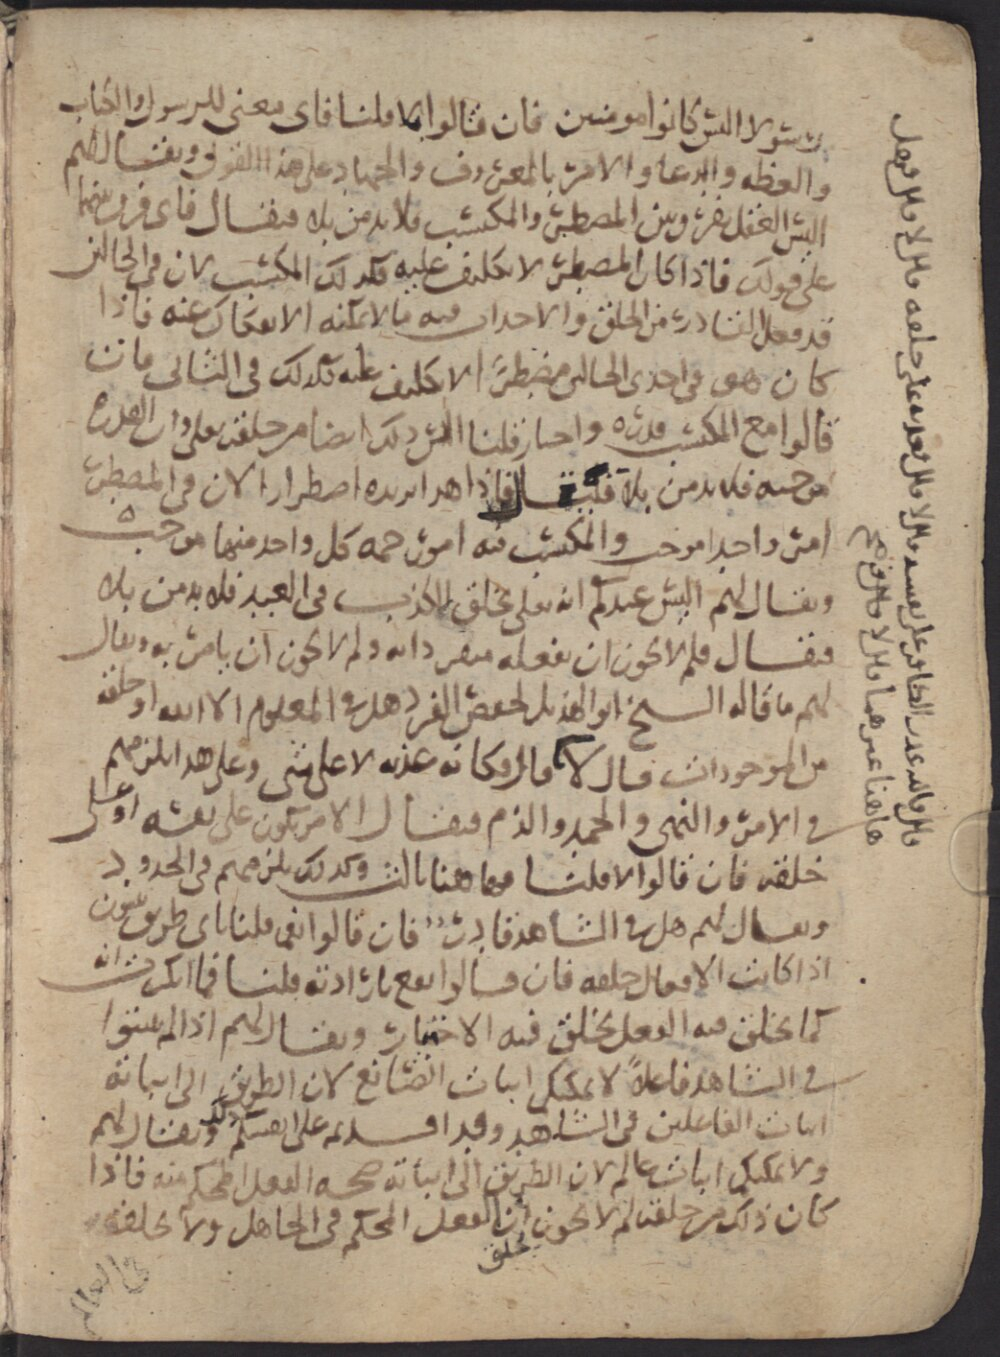 رسولا اليس كانوا مومنين فان قالوا بلا قلنا فاى معنى للرسول والكتاب
والعظه والدعا والامر بالمعروف والجهاد على هذا القول ويقال لهم
اليس العقل يفرق بين المضطر والمكتسب فلا بد من بلا فيقال فاى فرق بينهما
على قولك فاذا كان المضطر لا تكليف عليه فكذلك المكتسب لان فى الحالين
قد فعل القادر من الخلق والاحداث فيه ما لا يمكنه الانفكاك عنه فاذا
كان هو فى احدى الحالين مضطرا لا تكليف عليه فكذلك فى الثانى فان
قالوا مع المكتسب قدرة واختيار قلنا اليس ذلك ايضا من خلقه تعلى وان القدره
موجبه فلا بد من بلا فيقال فاذا هذا يزيده اضطرارا لان فى المضطر
امر واحد اموجب والمكتسب فيه امور جمه كل واحد منها موجب
ويقال لهم اليس عندكم انه تعلى يخلق الكذب فى العبيد فلا بد من بلا
فيقال فلم لا يجوز ان يفعله منفردا به ولم لا يجوز ان يامر به ويقال
لهم ما قاله الشيخ ابو الهذيل لحفص الفرد هل فى المعلوم الا الله او خلقه
من الموجودات قال لا قال فكانه عذبه لا على شى وعلى هذا يلزمهم
فى الامر والنهى والحمد والذم فيقال الامر يكون على نفسه او على
خلقه فان قالوا لا قلنا فما هنا ثالث وكذلك يلزمهم فى الحدود
ويقال لهم هل فى الشاهد قادر فان قالوا نعم قلنا باى طريق تثبتون
اذا كانت الافعال خلقه فان قالوا يقع بارادته قلنا فما انكرت انه
كما يخلق فيه الفعل يخلق فيه الاختيار ويقال لهم اذا لم تثبتوا
فى الشاهد فاعلا لا يمكنكم اثبات الصانع لان الطريق الى اثباته
اثبات الفاعلين فى الشاهد وقد افسدتم على انفسكم ذلك ويقال لهم
ولا يمكنكم اثبات عالم لان الطريق الى اثباته صحه الفعل المحكم منه فاذا
كان ذلك من خلقه لم لا يجوز ان يخلق الفعل المحكم فى الجاهل ولا يخلقه
فى العالم
قال فانه عذب الكافر على نفسه قال لا قال فعذبه على خلقه قال لا قال فهل
هاهنا غيرهما قال لا قال